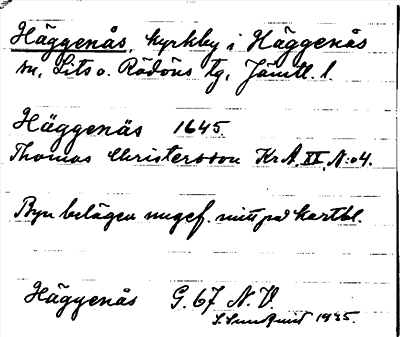 Häggenås, kyrkby i Häggenås
sn, Lits o. Rödöns tg, Jämtl. l.
Häggenäs 1645.
Thomas Christersson Kr A. XX, N:o 4.
Byn belägen ungef. mitt på kartbl.
Häggenås G. 67 N. V.
1945.